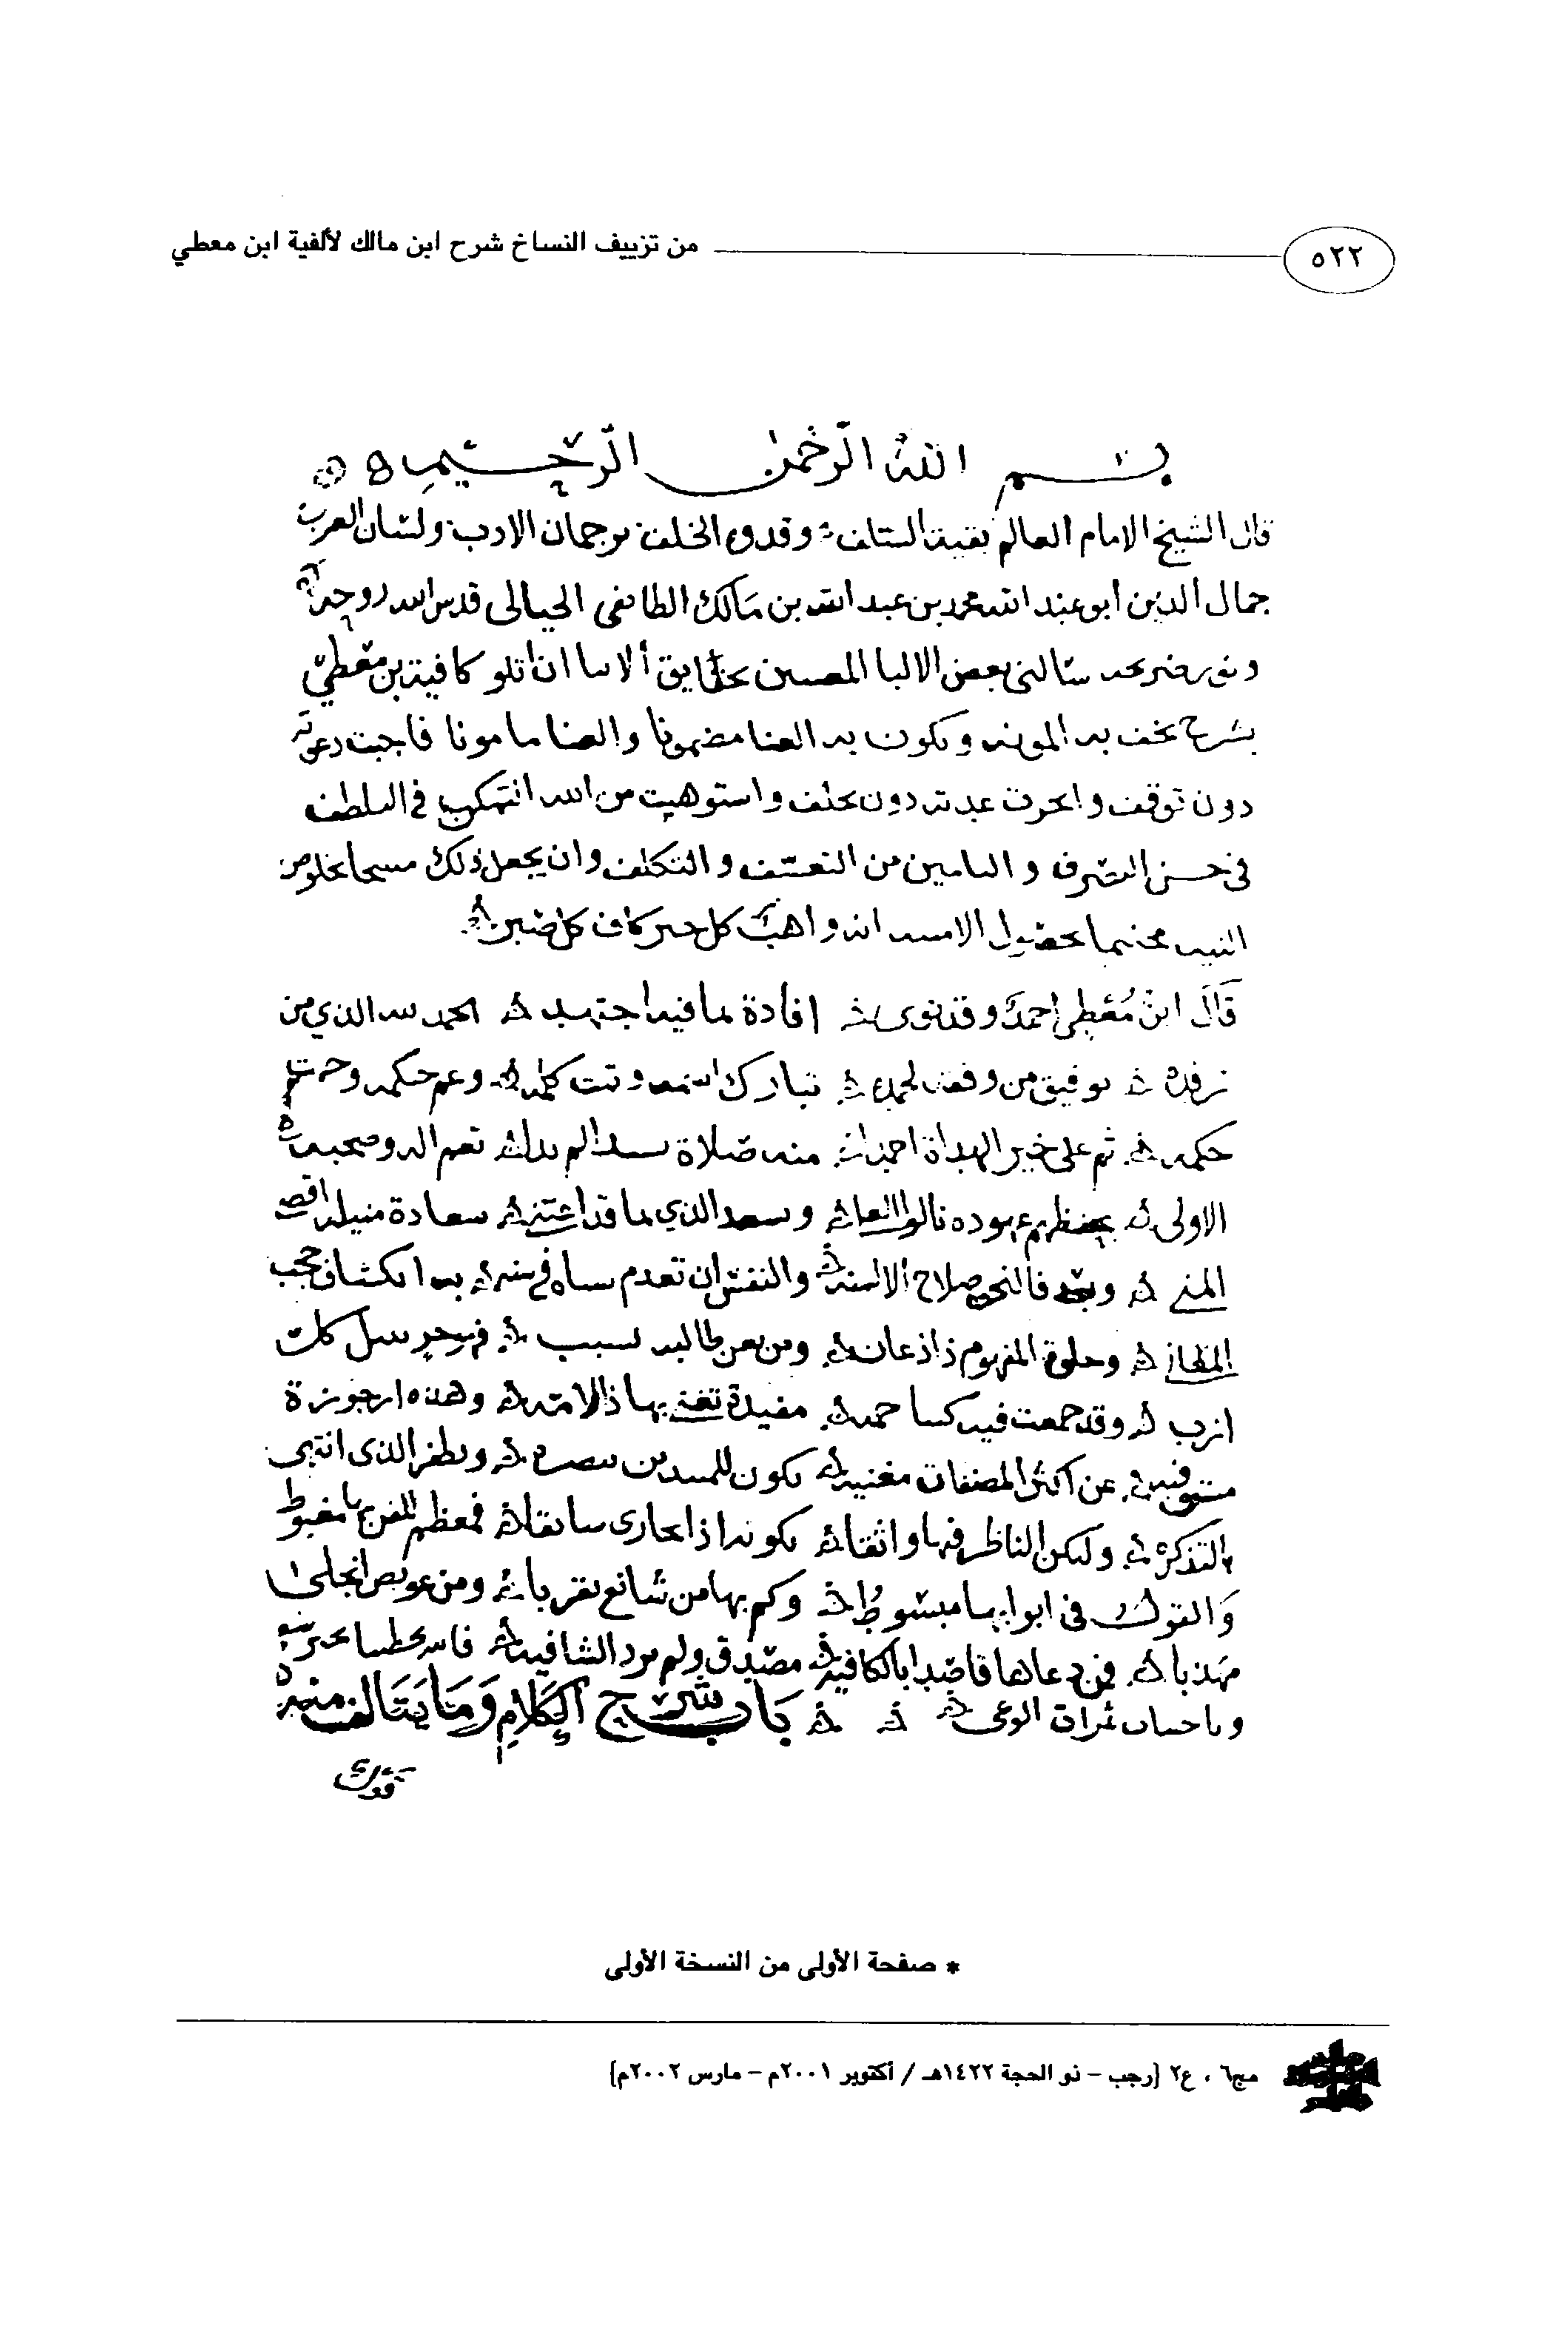 ٥٢٢ من تزييف النساخ شرح ابن مالك لألفية ابن معطي
بسم الله الرحمن الرحيم
قال الشيخ الامام العالم بقية السلف وقدوة الخلف ترجمان الادب ولسان العرب
جمال الدين أبو عبد الله محمد بن عبد الله بن مالك الطائي الجياني قدس الله روحه
سالني بعض الالبا ان اتلو كافية بن معطي
بشرح تخف به المونه ويكون به الغنا مضمونا والعنا مامونا فاجبت دعوته
دون توقف وانجزت عدته دون تخلف واستوهبت من الله التمكين في التلطف
في حسن التصرف والتامين من التعسف والتكلف وان يجعل ذلك بخلوص
النيه بحصول الامنيه انه واهب كل خير كاف كل ضير
قال ابن معطي احمد وقد نوى افادة بما فيه اجتهد الحمد لله الذي من
رفده توفيق من وفقه لحمده تبارك اسمه وتمت كلمه وعم حكمه وحمت
حكمه ثم على خير الهداة احمد منه صلاة تعم اله وصحبه
الاولى بحفظهم عهوده نالوا وسعد الذي بما قد اعتنى سعادة منيله اقصى
المنى وبعد فالنحو صلاح الالسنه والنفس ان تعدم سناه في سنه به انكشاف حجب
وجلوة المفهوم ذا اذعان ومن يعن طالبه بسبب
ارب وقد جمعت فيه مفيدة يعنى بها ذا الامه وهذه ارجوزة
عن اكثر المصنفات مغنيه تكون للمبتدين تبصره وتظفر الذي انتهى
بالتذكره وليكن الناظر فيها واثقا بكونه اذا يجارى سابقا فمعظم الفن بها مضبوط
والقول في ابوابها مبسوط وكم بها من شاسع تقربا ومن عويص انجلى
مهذبا فمن دعاها قاصدا بالكافيه مصدق ولم يزد الشافيه
ثمرات الوعي باب شرح الكلام وما يتالف منه
* صفحة الأولى من النسخة الأولى
مج٦ ، ع٢ [رجب – ذو الحجة ١٤٢٢هـ / أكتوبر ٢٠٠١م – مارس ٢٠٠٢م]